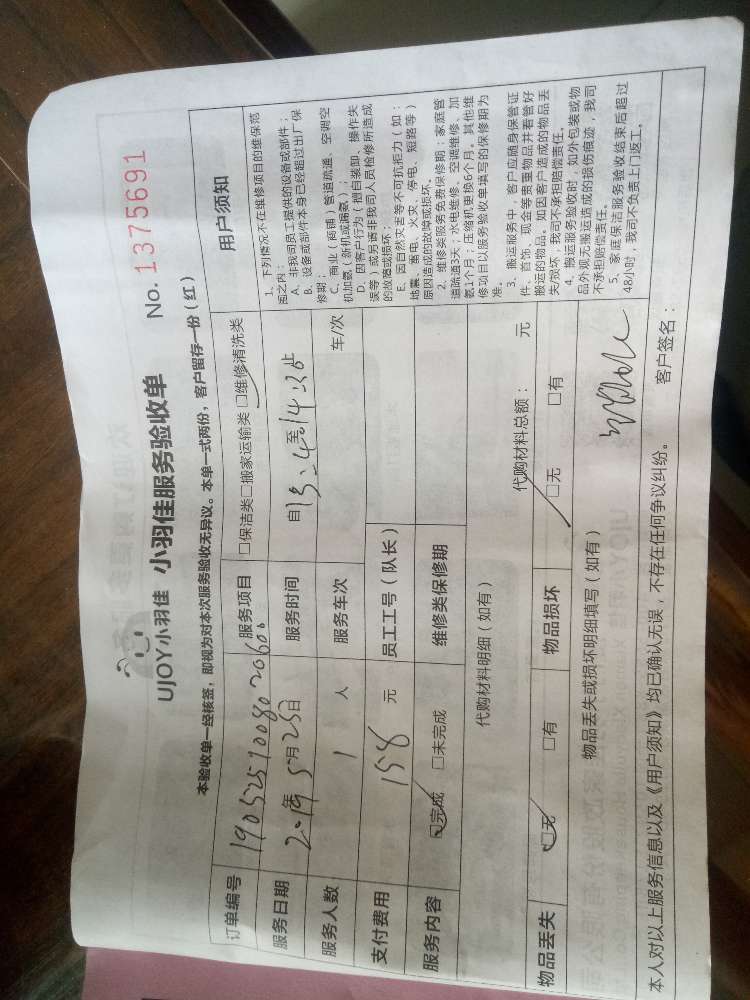 UJOY小羽佳 小羽佳服务验收单 No. 1375691
本验收单一经核签，即视为对本次服务验收无异议。本单一式两份，客户留存一份（红）
订单编号 服务项目 □保洁类□搬家运输类□维修清洗类
服务日期 2019年5月25日 服务时间 自13:40至14:38
服务人数 1 人 服务车次 车/次
支付费用 158 元 员工工号（队长）
服务内容 ☑完成 □未完成 维修类保修期
代购材料明细（如有）
代购材料总额： 元
物品丢失 ☑无 □有 物品损坏 ☑无 □有
物品丢失或损坏明细填写（如有）
用户须知
1、下列情况不在维修项目的维保范
围之内：
A、非我司员工提供的设备或部件；
B、设备或部件本身已经超过出厂保
修期；
C、商业（商铺）管道疏通、空调空
机加氨（新机或漏氨）；
D、因客户行为（擅自装卸、操作失
误等）或另请非我司人员检修所造成
的故障或损坏；
E、因自然灾害等不可抗拒力（如：
地震、蓄电、火灾、停电、短路等）
原因造成的故障或损坏。
2、维修类服务免费保修期：家庭管
道疏通3天；水电维修、空调维修、加
氨1个月；压缩机更换6个月。其他维
修项目以服务验收单填写的保修期为
准。
3、搬运服务中，客户应随身保管证
件、首饰、现金等贵重物品并看管好
搬运的物品。如因客户造成的物品丢
失/损坏，我司不承担赔偿责任。
4、搬运服务验收时，如外包装或物
品外观无搬运造成的损伤痕迹，我司
不承担赔偿责任。
5、家庭保洁服务验收结束后超过
48小时，我司不负责上门返工。
本人对以上服务信息以及《用户须知》均已确认无误，不存在任何争议纠纷。 客户签名：